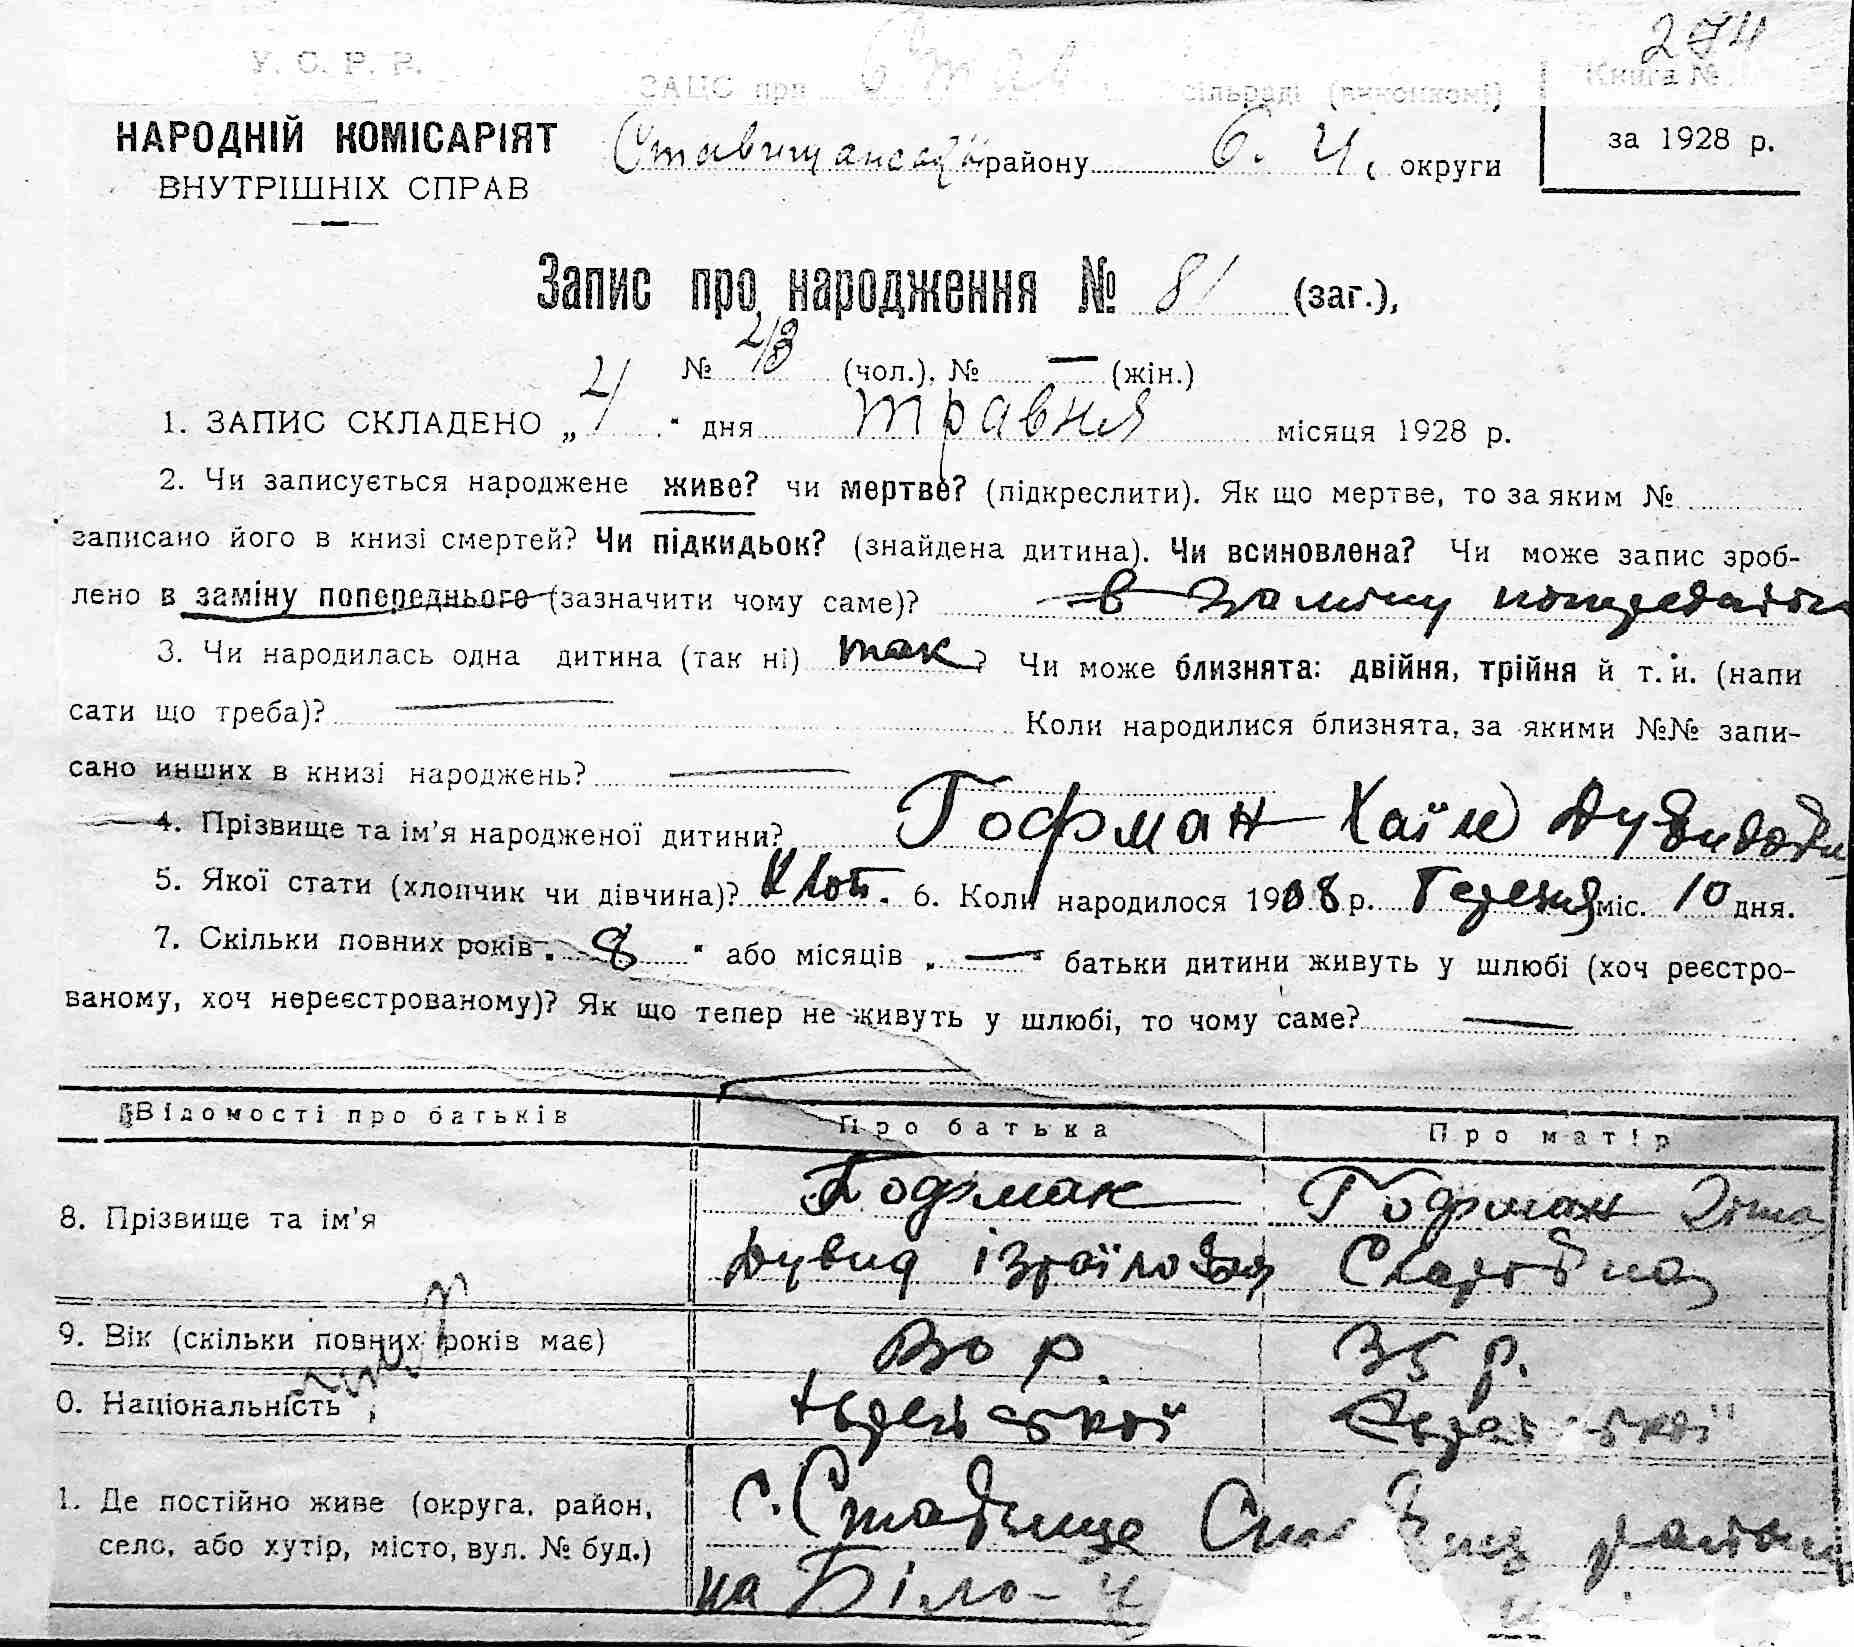 274
У. С. Р. Р. ЗАЦС при Став сільраді (виконкомі) Книга №
НАРОДНІЙ КОМІСАРІЯТ району Б. Ц. округи за 1928 р.
ВНУТРІШНІХ СПРАВ
Запис про народження № 81 (заг.),
№ (чол.), № — (жін.)
1. ЗАПИС СКЛАДЕНО „ " дня травня місяця 1928 р.
2. Чи записується народжене живе? чи мертве? (підкреслити). Як що мертве, то за яким №
записано його в книзі смертей? Чи підкидьок? (знайдена дитина). Чи всиновлена? Чи може запис зроб-
лено в заміну попереднього (зазначити чому саме)? в заміну
3. Чи народилась одна дитина (так ні) так? Чи може близнята: двійня, трійня й т. и. (напи
сати що треба)? — Коли народилися близнята, за якими №№ запи-
сано инших в книзі народжень? —
4. Прізвище та ім'я народженої дитини? Гофман Хаїм
5. Якої стати (хлопчик чи дівчина)? Хлоп. 6. Коли народилося 19 8 р. міс. 10 дня.
7. Скільки повних років „ 8 " або місяців „ — " батьки дитини живуть у шлюбі (хоч реєстро-
ваному, хоч нереєстрованому)? Як що тепер не живуть у шлюбі, то чому саме? —
Відомості про батьків Про батька Про матір
8. Прізвище та ім'я Гофман Гофман
Дувид Ізраїлович
9. Вік (скільки повних років має) р. 35 р.
0. Національність Єврейської Єврейської
1. Де постійно живе (округа, район, с. Ставище
село, або хутір, місто, вул. № буд.) на Біло-Ц